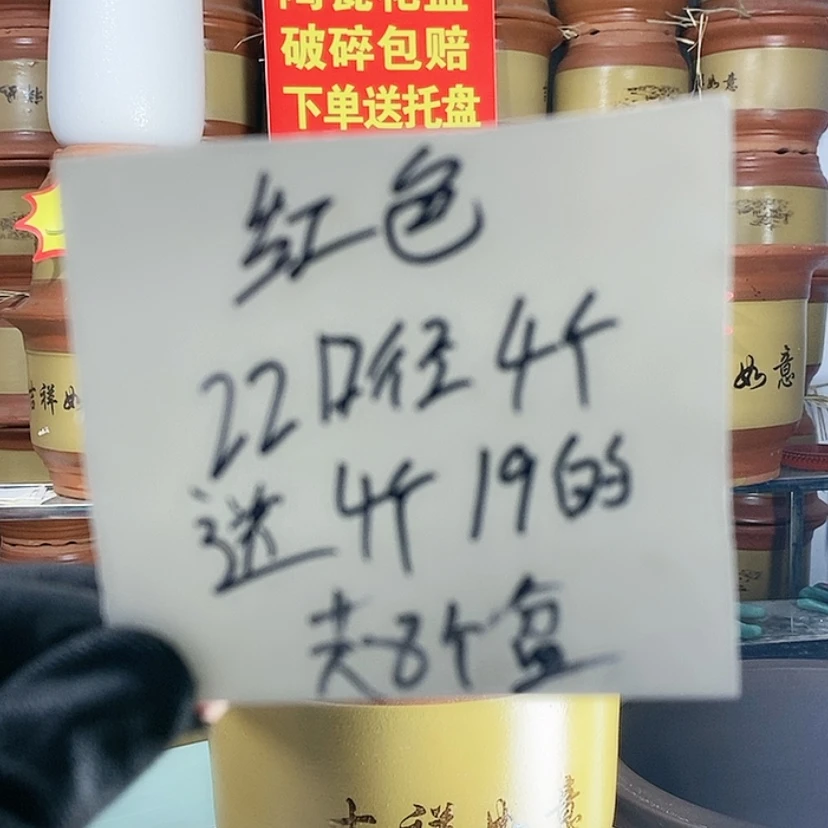 陶瓷花盆
破碎包赔
下单送托盘
红色
22口径4个
送4个19的
共8个盆
如意
吉祥如
如意
吉祥如意